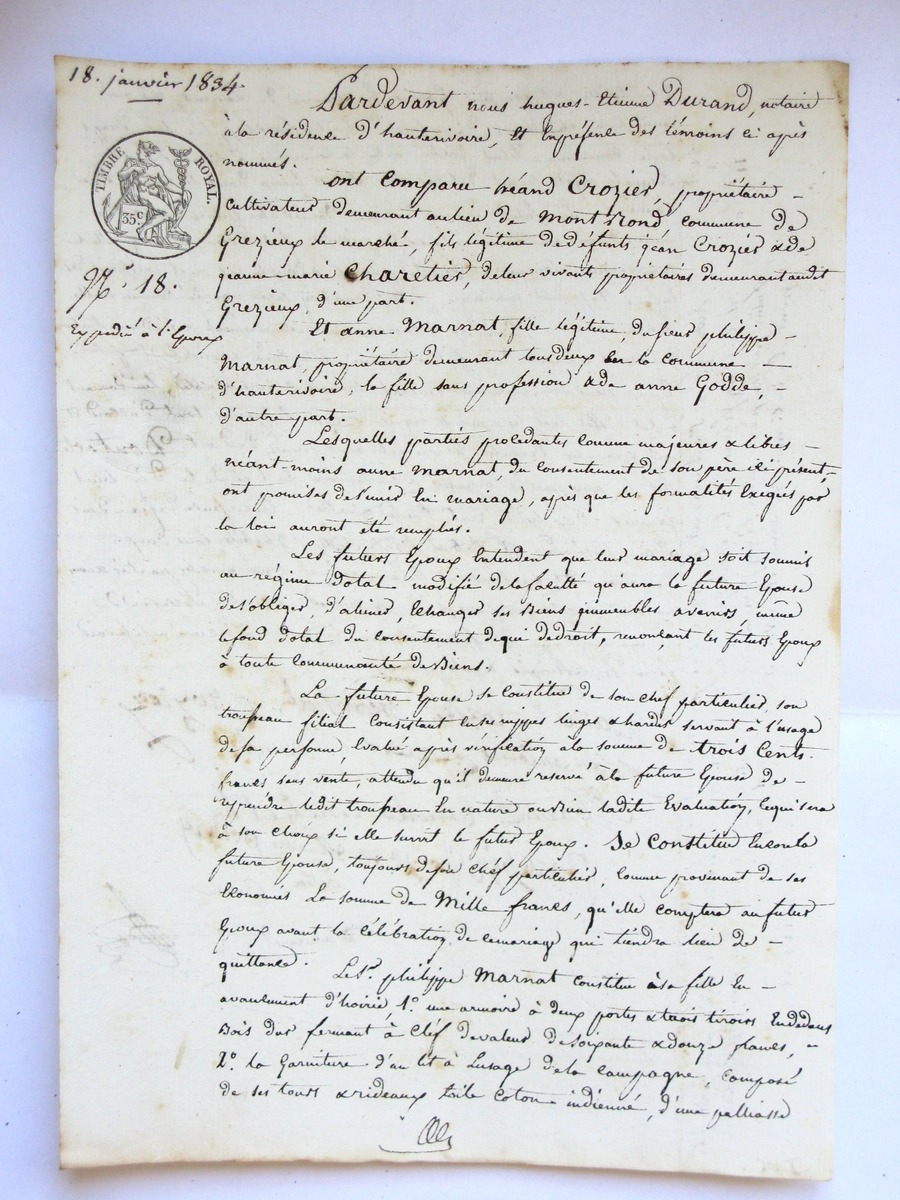 18. janvier 1834.
TIMBRE ROYAL.
35 c
N.o 18.
Expédié à l'Epoux
Pardevant nous hugues-Etienne Durand, notaire
à la résidence d'hauterivoire, et En présence des témoins ci après
nommés.
ont Comparu Crozier, propriétaire
cultivateur demeurant au lieu de Montrond commune de
Grezieux le marché, fils légitime de défunts jean Crozier & de
jeanne-marie Charetier, de leur vivants propriétaires demeurant audit
Grezieux, d'une part.
Et anne Marnat, fille légitime, du sieur philippe
Marnat, propriétaire demeurant tous deux la commune
d'hauterivoire, la fille sans profession & de anne Godde,
d'autre part.
Lesquelles parties procédantes comme majeures & libres
néant-moins anne Marnat, du consentement de son père ici présent,
ont promises de s'unir En mariage, après que les formalités Exigées par
la loi auront été remplies.
Les futurs Epoux Entendent que leur mariage soit soumis
au régime dotal modifié de la faculté qu'aura la future Epouse
de s'obliger, d'aliéner, Echanger ses Biens immeubles avenirs, même
le fond dotal du consentement de qui de droit, renonçant les futurs Epoux
à toute Communauté de Biens.
La future Epouse se Constitue de son chef particulier, son
trousseau filial Consistant En ses nippes linges & hardes servant à l'usage
de sa personne, Evalué après vérification à la somme de trois Cents
francs sans vente, attendu qu'il demeure reservé à la future Epouse de
reprendre ledit trousseau En nature ou Bien ladite Evaluation, ce qui sera
à son choix si elle survit le futur Epoux. Se Constitue Encore la
future Epouse, toujours de son Chef particulier, Comme provenant de ses
Economies La somme de Mille francs, qu'elle comptera au futur
Epoux avant la Célébration de ce mariage qui tiendra lieu de
quittance. Le S.r philippe Marnat constitue à sa fille En
avancement d'hoirie, 1.o une armoire à deux portes & trois tiroirs En dedans
Bois dur fermant à Clef de valeur de soixante & douze francs,
2.o la Garniture d'un lit à Lusage de la Campagne, Composé
de ses tours & rideaux toile Coton indienné, d'une palliasse